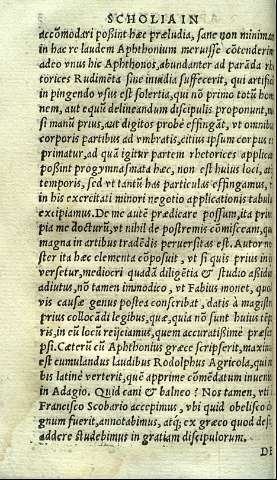 SCHOLIA IN
accōmodari poßint hæc præludia, sane non minimam
in hac re laudem Aphthonium meruisse cōtenderim
adeo vnus hic Aphthonos, abundanter ad parāda rhe
torices Rudimēta sine inuidia suffecerit, qui artifici
in pingendo vsus est solertia, qui nō primo totū homi
nem, aut equū delineandum discipulis proponunt, ni
si manū prius, aut digitos probè effingāt, vt omnibus
corporis partibus ad vmbratis, citius ipsum corpus ex
primatur, ad quā igitur partem rhetorices applicari
possint progymnasmata hæc, non est huius loci, aut
temporis, sed vt tantū has particulas effingamus, vt
in his exercitati minori negotio applicationis tabulas
excipiamus. De me autē prædicare possum, ita princi
pia me docturū, vt nihil de postremis cōmisceam, quæ
magna in artibus tradēdis peruersitas est. Autor no
ster ita hæc elementa cōposuit, vt si quis prius in iis
versetur, mediocri quadā diligētia & studio aßiduo
adiutus, nō tamen immodico, vt Fabius monet, quo
vis causæ genus postea conscribat, datis à magistro
prius collocādi legibus, quæ, quia nō sunt huius tēpo
ris, in eū locū reijciamus, quem accuratißimè præscri
psi. Cæterū cū Aphthonius græce scripserit, maximè
est cumulandus laudibus Rodolphus Agricola, qui no
bis latinè verterit, quē apprime cōmēdatum inuenio
in Adagio. Quid cani & balneo? Nos tamen, vti à
Francisco Scobario accepinus, vbi quid obelisco di
gnum fuerit, annotabimus, atq; ex græco quod deest
addere studebimus in gratiam discipulorum.
DE